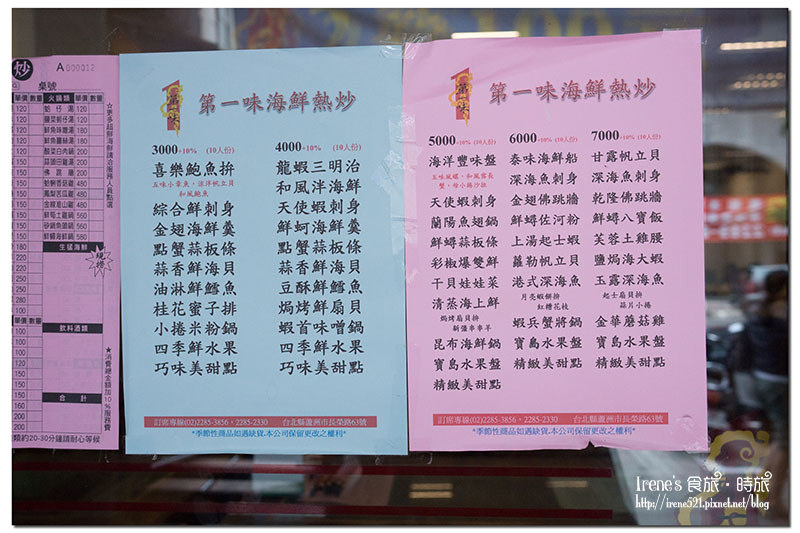 炒
A 000012
桌號
單價 數量 火鍋類 單價 數量
生猛海鮮
現撈
飲料酒類
合計
☆消費總金額加10%服務費
類約20-30分鐘請耐心等候
第一味
第一味海鮮熱炒
3000+10% (10人份)
喜樂鮑魚拚
五味小章魚。涼洋帆立貝
和風鮑魚
綜合鮮刺身
金翅海鮮羹
點蟹蒜板條
蒜香鮮海貝
油淋鮮鱈魚
桂花蜜子排
小捲米粉鍋
四季鮮水果
巧味美甜點
4000+10% (10人份)
龍蝦三明治
和風洋海鮮
天使蝦刺身
鮮蚵海鮮羹
點蟹蒜板條
蒜香鮮海貝
豆酥鮮鱈魚
焗烤鮮扇貝
蝦首味噌鍋
四季鮮水果
巧味美甜點
訂席專線(02)2285-3856。2285-2330 台北縣蘆洲市長榮路63號
*季節性商品如遇缺貨.本公司保留更改之權利*
第一味
第一味海鮮熱炒
5000+10% (10人份)
海洋豐味盤
五味風螺。和風雪長
蟹。母小捲沙拉
天使蝦刺身
蘭陽魚翅鍋
鮮蟳蒜板條
彩椒爆雙鮮
干貝娃娃菜
清蒸海上鮮
焗烤扇貝拚
刷鹽串串羊
昆布海鮮鍋
寶島水果盤
精緻美甜點
6000+10% (10人份)
泰味海鮮船
深海魚刺身
金翅佛跳牆
鮮蟳佐河粉
上湯起士蝦
蘿勒帆立貝
港式深海魚
月亮蝦餅拚
紅糟花枝
蝦兵蟹將鍋
寶島水果盤
精緻美甜點
7000+10% (10人份)
甘露帆立貝
深海魚刺身
乾隆佛跳牆
鮮蟳八寶飯
芙蓉土雞腰
鹽焗海大蝦
玉露深海魚
起士扇貝拚
蒜片小捲
金華蘑菇雞
寶島水果盤
精緻美甜點
訂席專線(02)2285-3856。2285-2330 台北縣蘆洲市長榮路63號
*季節性商品如遇缺貨.本公司保留更改之權利*
Irene's 食旅・時旅
http://irene521.pixnet.net/blog